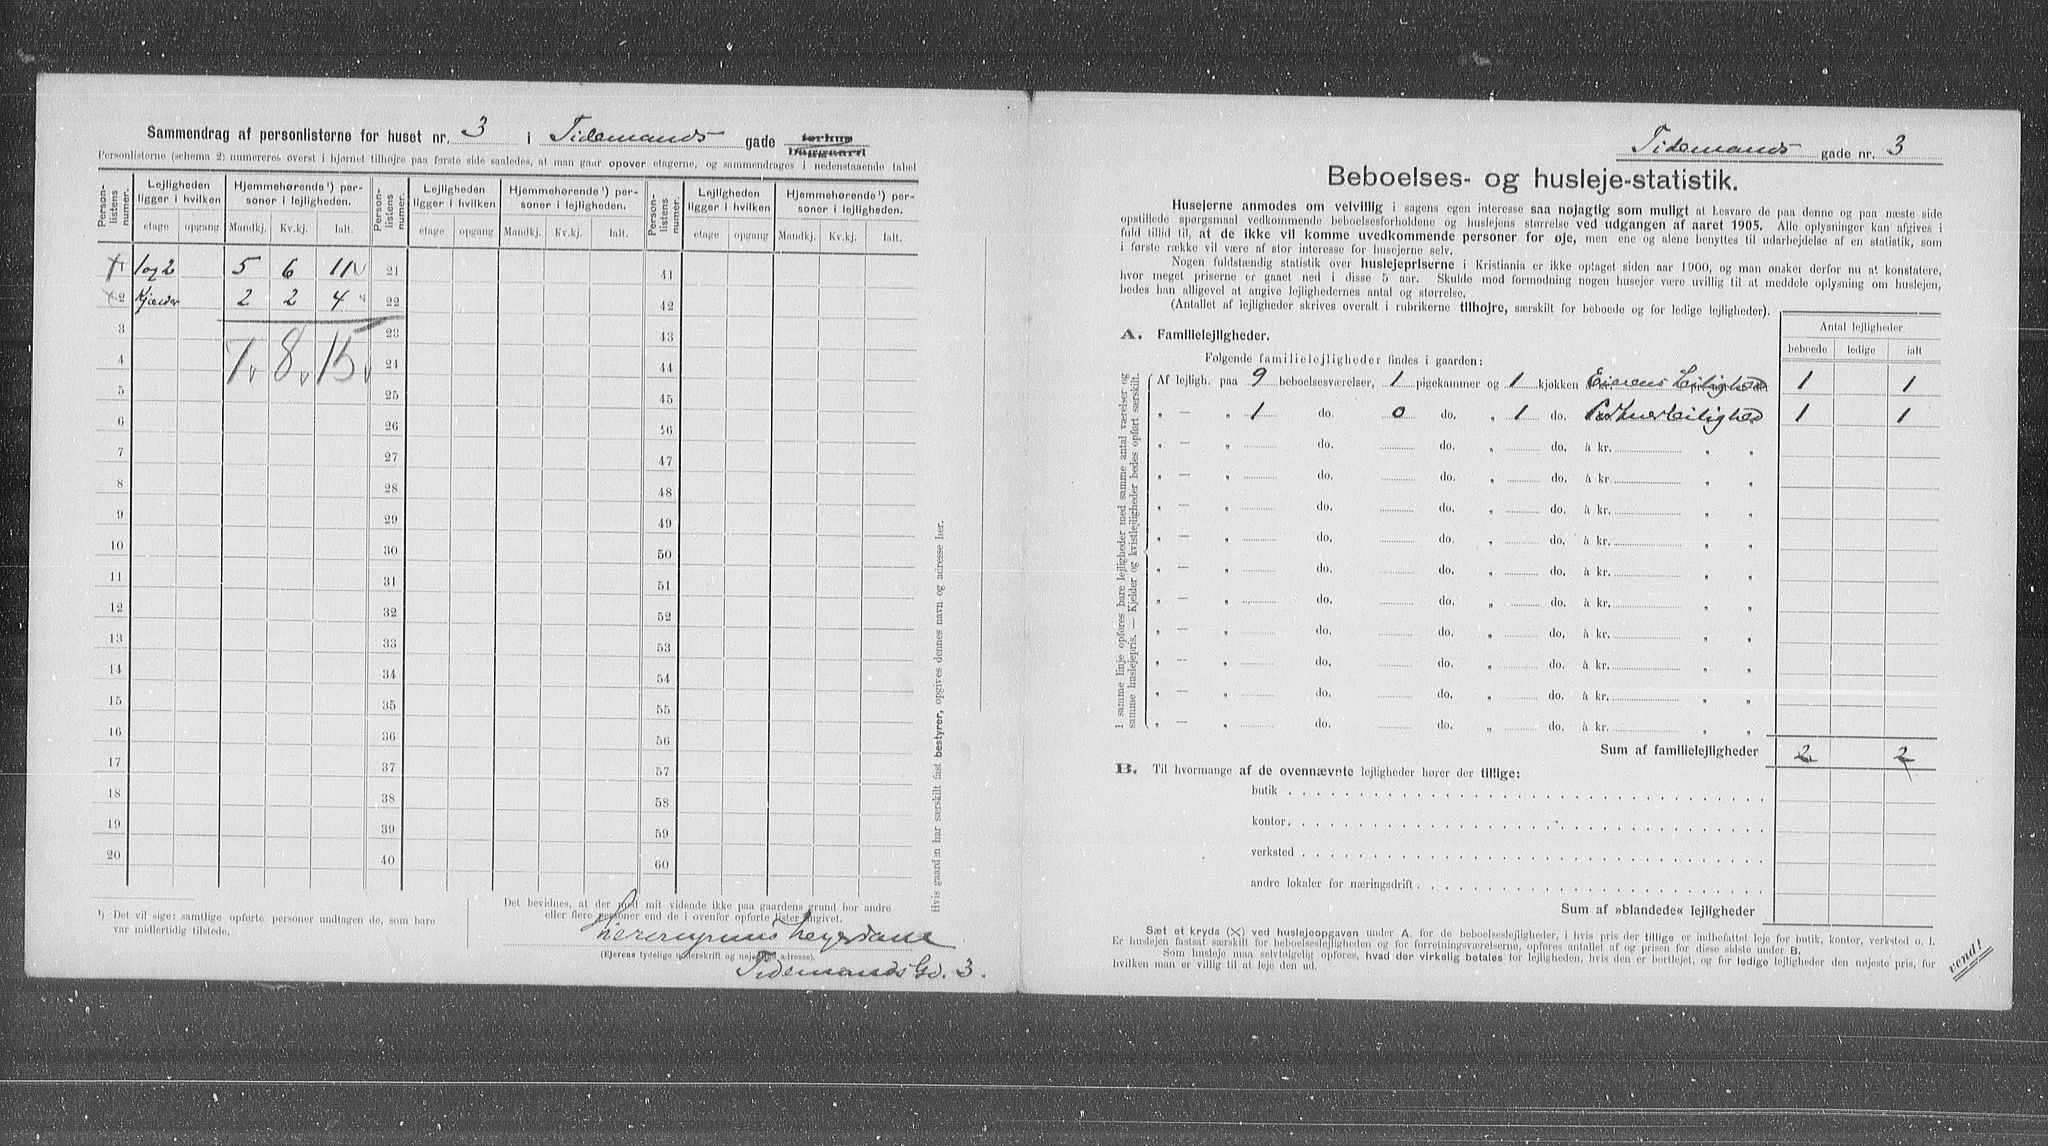 Sammendrag af personlisterne for huset nr. 3 i Tidemands gade forhus
baggaard
Personlisterne (schema 2) numereres øverst i hjørnet tilhøjre paa første side saaledes, at man gaar opover etagerne, og sammendrages i nedenstaaende tabel
Person-listens numer. Lejligheden ligger i hvilken Hjemmehørende¹) personer i lejligheden. Person-listens numer. Lejligheden ligger i hvilken Hjemmehørende¹) personer i lejligheden. Person-listens numer. Lejligheden ligger i hvilken Hjemmehørende¹) personer i lejligheden.
etage opgang Mandkj. Kv.kj. Ialt. etage opgang Mandkj. Kv.kj. Ialt. etage opgang Mandkj. Kv.kj. Ialt.
1 1 og 2 5 6 11 21 41
2 Kjælder 2 2 4 22 42
3 23 43
7 8 15
4 24 44
5 25 45
6 26 46
7 27 47
8 28 48
9 29 49
10 30 50
11 31 51
12 32 52
13 33 53
14 34 54
15 35 55
16 36 56
17 37 57
18 38 58
19 39 59
20 40 60
¹) Det vil sige: samtlige opførte personer undtagen de, som bare
var midlertidig tilstede.
Det bevidnes, at der med mit vidende ikke paa gaardens grund bor andre
eller flere personer end de i ovenfor opførte lister angivet.
Hieronymus Heyerdahl
(Ejerens tydelige underskrift og nøjagtige adresse).
Tidemands Gd. 3.
Hvis gaarden har særskilt fast bestyrer, opgives dennes navn og adresse her.
Tidemands gade nr. 3
Beboelses- og husleje-statistik.
Husejerne anmodes om velvillig i sagens egen interesse saa nøjagtig som muligt at besvare de paa denne og paa næste side
opstillede spørgsmaal vedkommende beboelsesforholdene og huslejens størrelse ved udgangen af aaret 1905. Alle oplysninger kan afgives i
fuld tillid til, at de ikke vil komme uvedkommende personer for øje, men ene og alene benyttes til udarbejdelse af en statistik, som
i første række vil være af stor interesse for husejerne selv.
Nogen fuldstændig statistik over huslejepriserne i Kristiania er ikke optaget siden aar 1900, og man ønsker derfor nu at konstatere,
hvor meget priserne er gaaet ned i disse 5 aar. Skulde mod formodning nogen husejer være uvillig til at meddele oplysning om huslejen,
bedes han alligevel at angive lejlighedernes antal og størrelse.
(Antallet af lejligheder skrives overalt i rubrikerne tilhøjre, særskilt for beboede og for ledige lejligheder).
Antal lejligheder
beboede ledige ialt
A. Familielejligheder.
Følgende familielejligheder findes i gaarden:
I samme linje opføres bare lejligheder med samme antal værelser og
samme huslejepris. — Kjelder og kvistlejligheder bedes opført særskilt.
Af lejligh. paa 9 beboelsesværelser, 1 pigekammer og 1 kjøkken Eierens Leilighed 1 1
„ — „ 1 do. 0 do. „ 1 do. Portnerleilighed 1 1
„ — „ do. do. „ do. à kr. „ „
„ — „ do. do. „ do. à kr. „ „
„ — „ do. do. „ do. à kr. „ „
„ — „ do. do. „ do. à kr. „ „
„ — „ do. do. „ do. à kr. „ „
„ — „ do. do. „ do. à kr. „ „
„ — „ do. do. „ do. à kr. „ „
„ — „ do. do. „ do. à kr. „ „
„ — „ do. do. „ do. à kr. „ „
„ — „ do. do. „ do. à kr. „ „
Sum af familielejligheder 2 2
B. Til hvormange af de ovennævnte lejligheder hører der tillige:
butik
kontor
verksted
andre lokaler for næringsdrift
Sum af »blandede« lejligheder
Sæt et kryds (×) ved huslejeopgaven under A. for de beboelseslejligheder, i hvis pris der tillige er indbefattet leje for butik, kontor, verksted o. l.
Er huslejen fastsat særskilt for beboelseslejligheden og for forretningsværelserne, opføres antallet af og prisen for disse sidste under B.
Som husleje maa selvfølgelig opføres, hvad der virkelig betales for lejligheden, hvis den er bortlejet, og for ledige lejligheder den nøjeste pris, for
hvilken man er villig til at leje den ud.
vend!